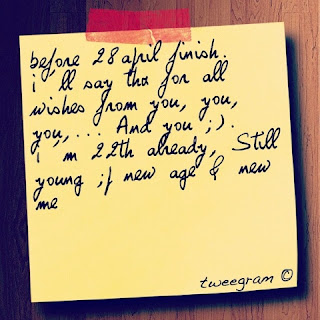 before 28 april finish.
i 'll say thx for all
wishes from you, you,
you,... And you ;).
i 'm 22th already, Still
young ;p new age & new
me
tweegram ©